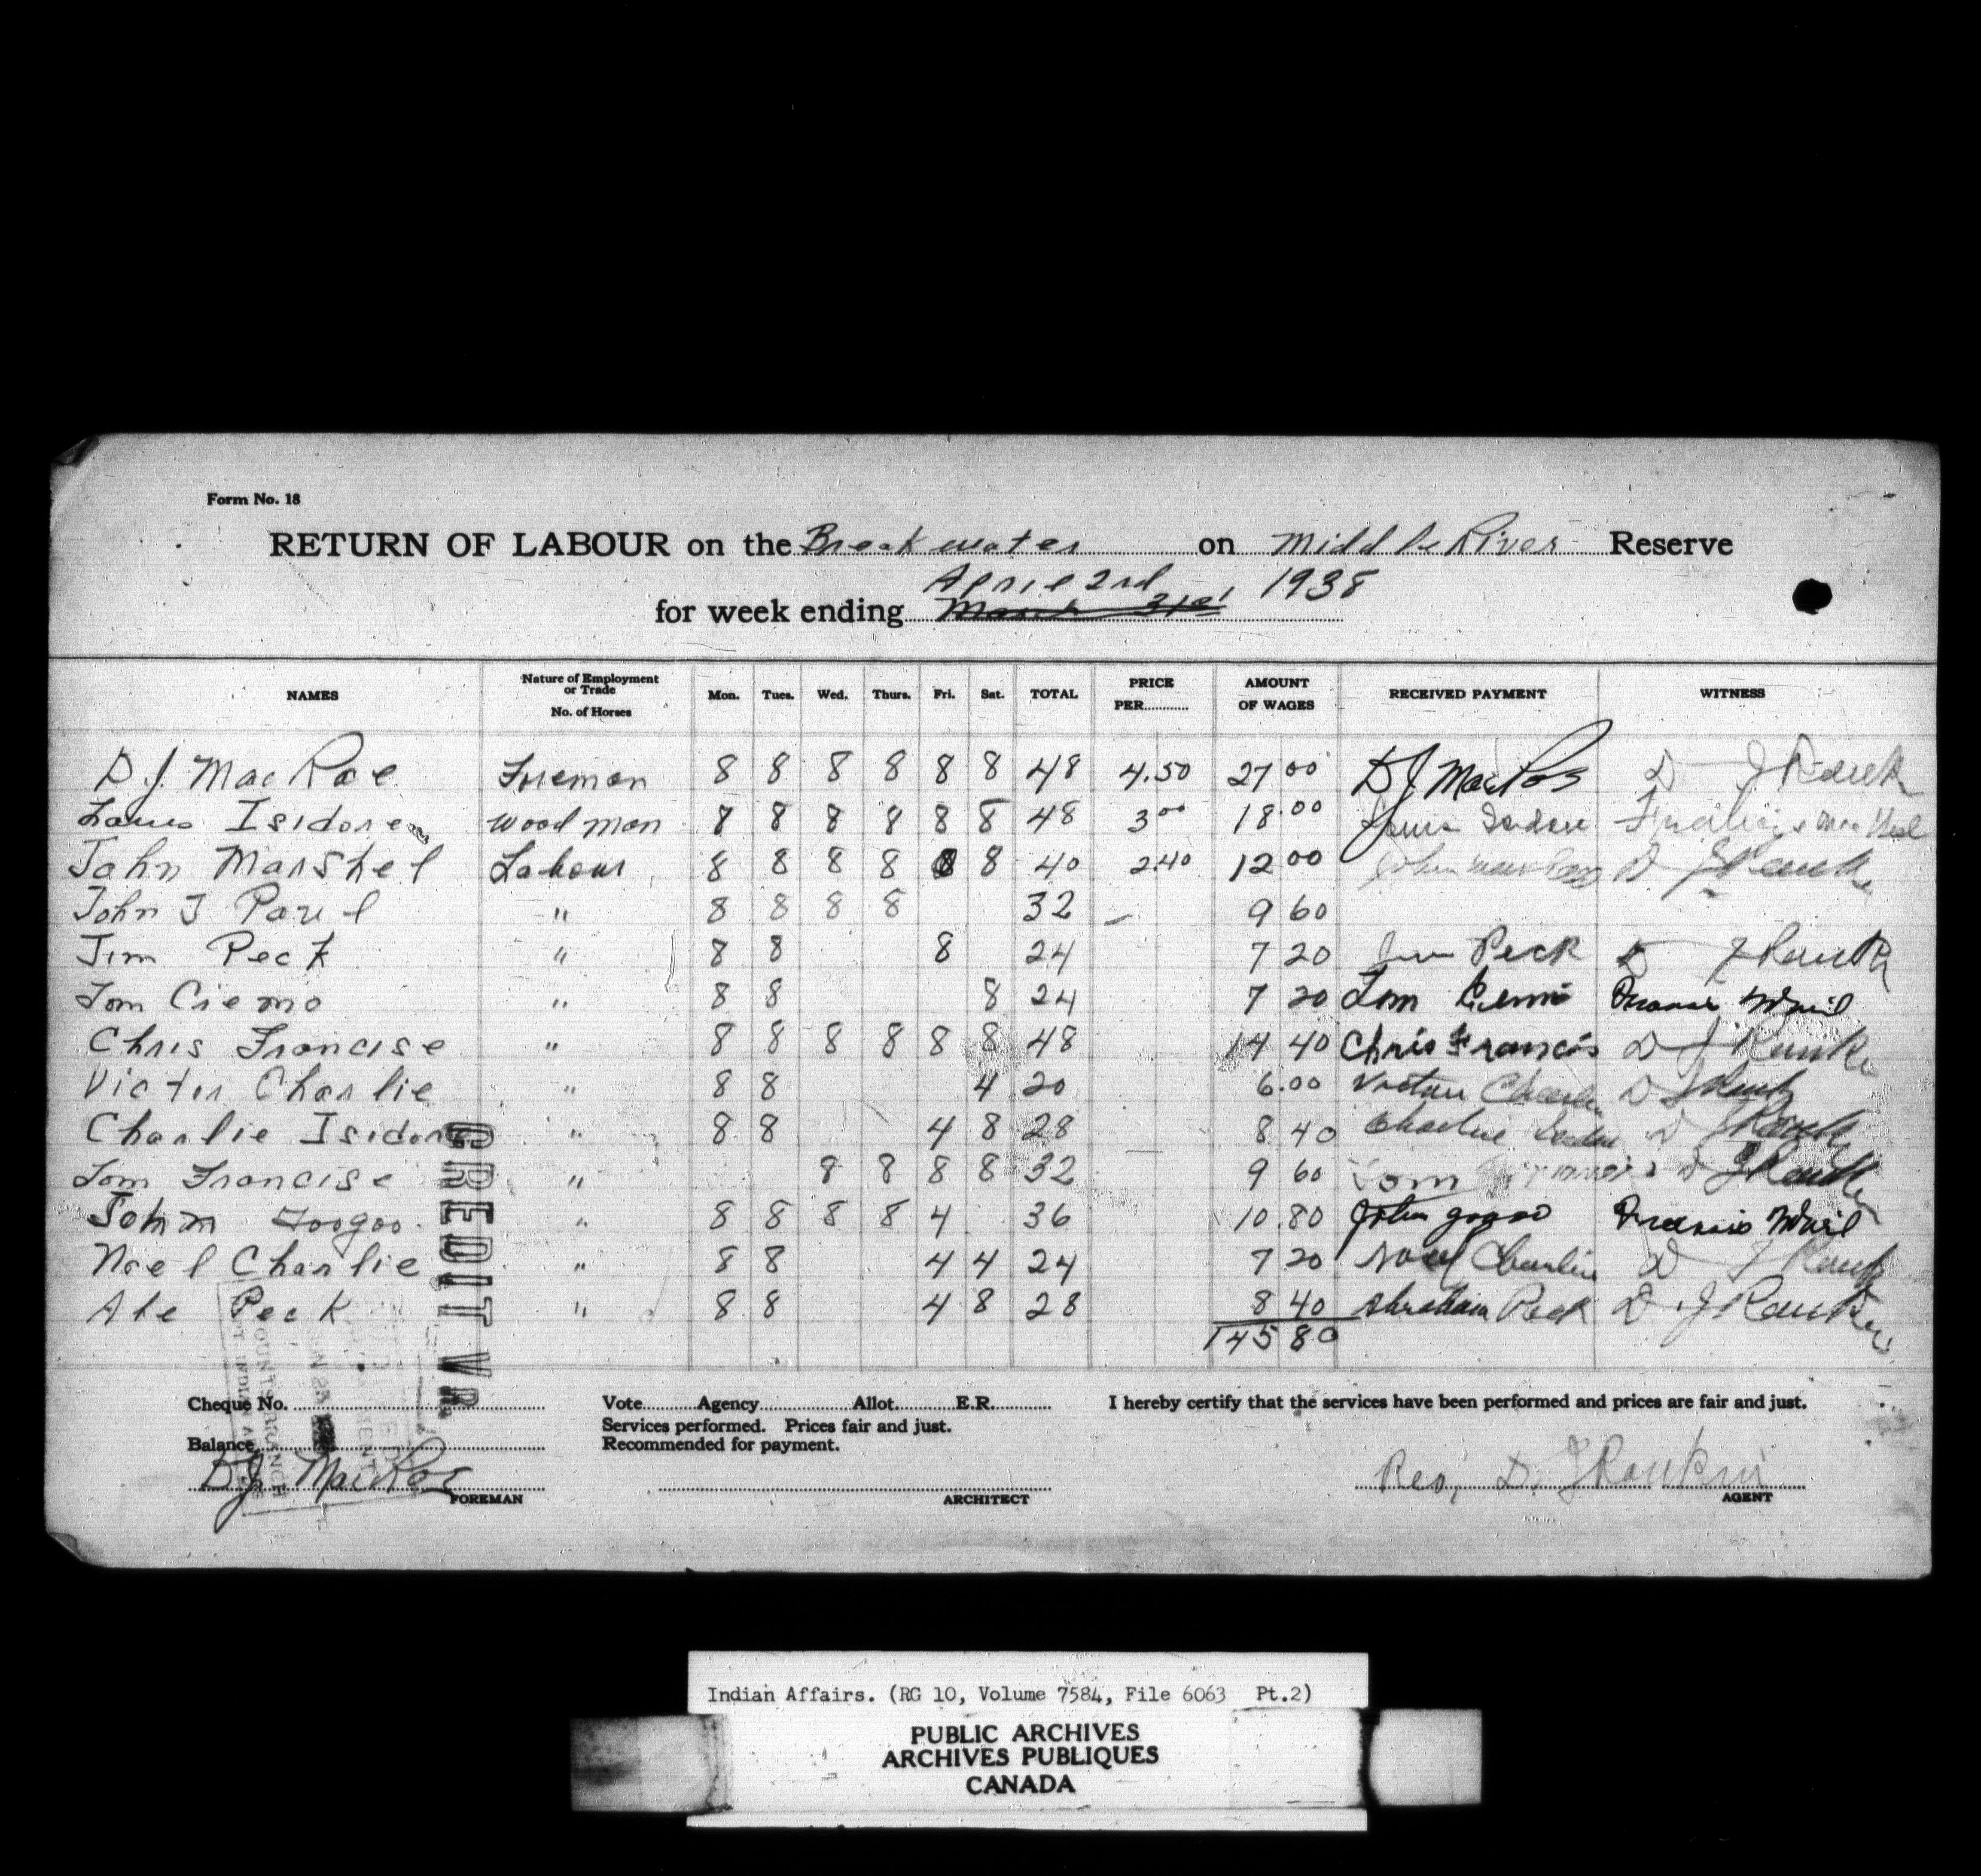 Form No. 18
RETURN OF LABOUR on the Breakwater on Middle River Reserve
April 2nd 1938
for week ending March 31st
NAMES Nature of Employment or Trade No. of Horses Mon. Tues. Wed. Thurs. Fri. Sat. TOTAL PRICE PER AMOUNT OF WAGES RECEIVED PAYMENT WITNESS
D.J. MacRae Foreman 8 8 8 8 8 8 48 4.50 27 00 DJ MacRae D J Rank
Louis Isidore Wood man 8 8 8 8 8 8 48 3 00 18.00 Louis Isidore
John Marshel Labour 8 8 8 8 8 8 40 2.40 12 00 John D J Rank
John J Paul " 8 8 8 8 32 9 60
Jim Peck " 8 8 8 24 7 20 Jim Peck D J Rank
Tom Ciemo " 8 8 8 24 7 20 Tom
Chris Francise " 8 8 8 8 8 8 48 14 40 Chris Francis D J Rank
Victor Charlie " 8 8 4 20 6.00 Victor Charlie D J Rank
Charlie Isidore " 8 8 4 8 28 8 40 Charlie Isidore D J Rank
Tom Francise " 8 8 8 8 32 9 60 Tom Francis D J Rank
John Googoo " 8 8 8 8 4 36 10.80 John gogoo Francis
Noel Charlie " 8 8 4 4 24 7 20 Noel Charlie D J Rank
Abe Peck " 8 8 4 8 28 8 40 Abraham Peck D. J Rankin
145 80
CREDIT VR.
Cheque No. Vote Agency Allot. E.R. I hereby certify that the services have been performed and prices are fair and just.
Services performed. Prices fair and just.
Balance Recommended for payment.
DJ MacRae Rev, D. J Rankin
FOREMAN ARCHITECT AGENT
Indian Affairs. (RG 10, Volume 7584, File 6063 Pt.2)
PUBLIC ARCHIVES
ARCHIVES PUBLIQUES
CANADA